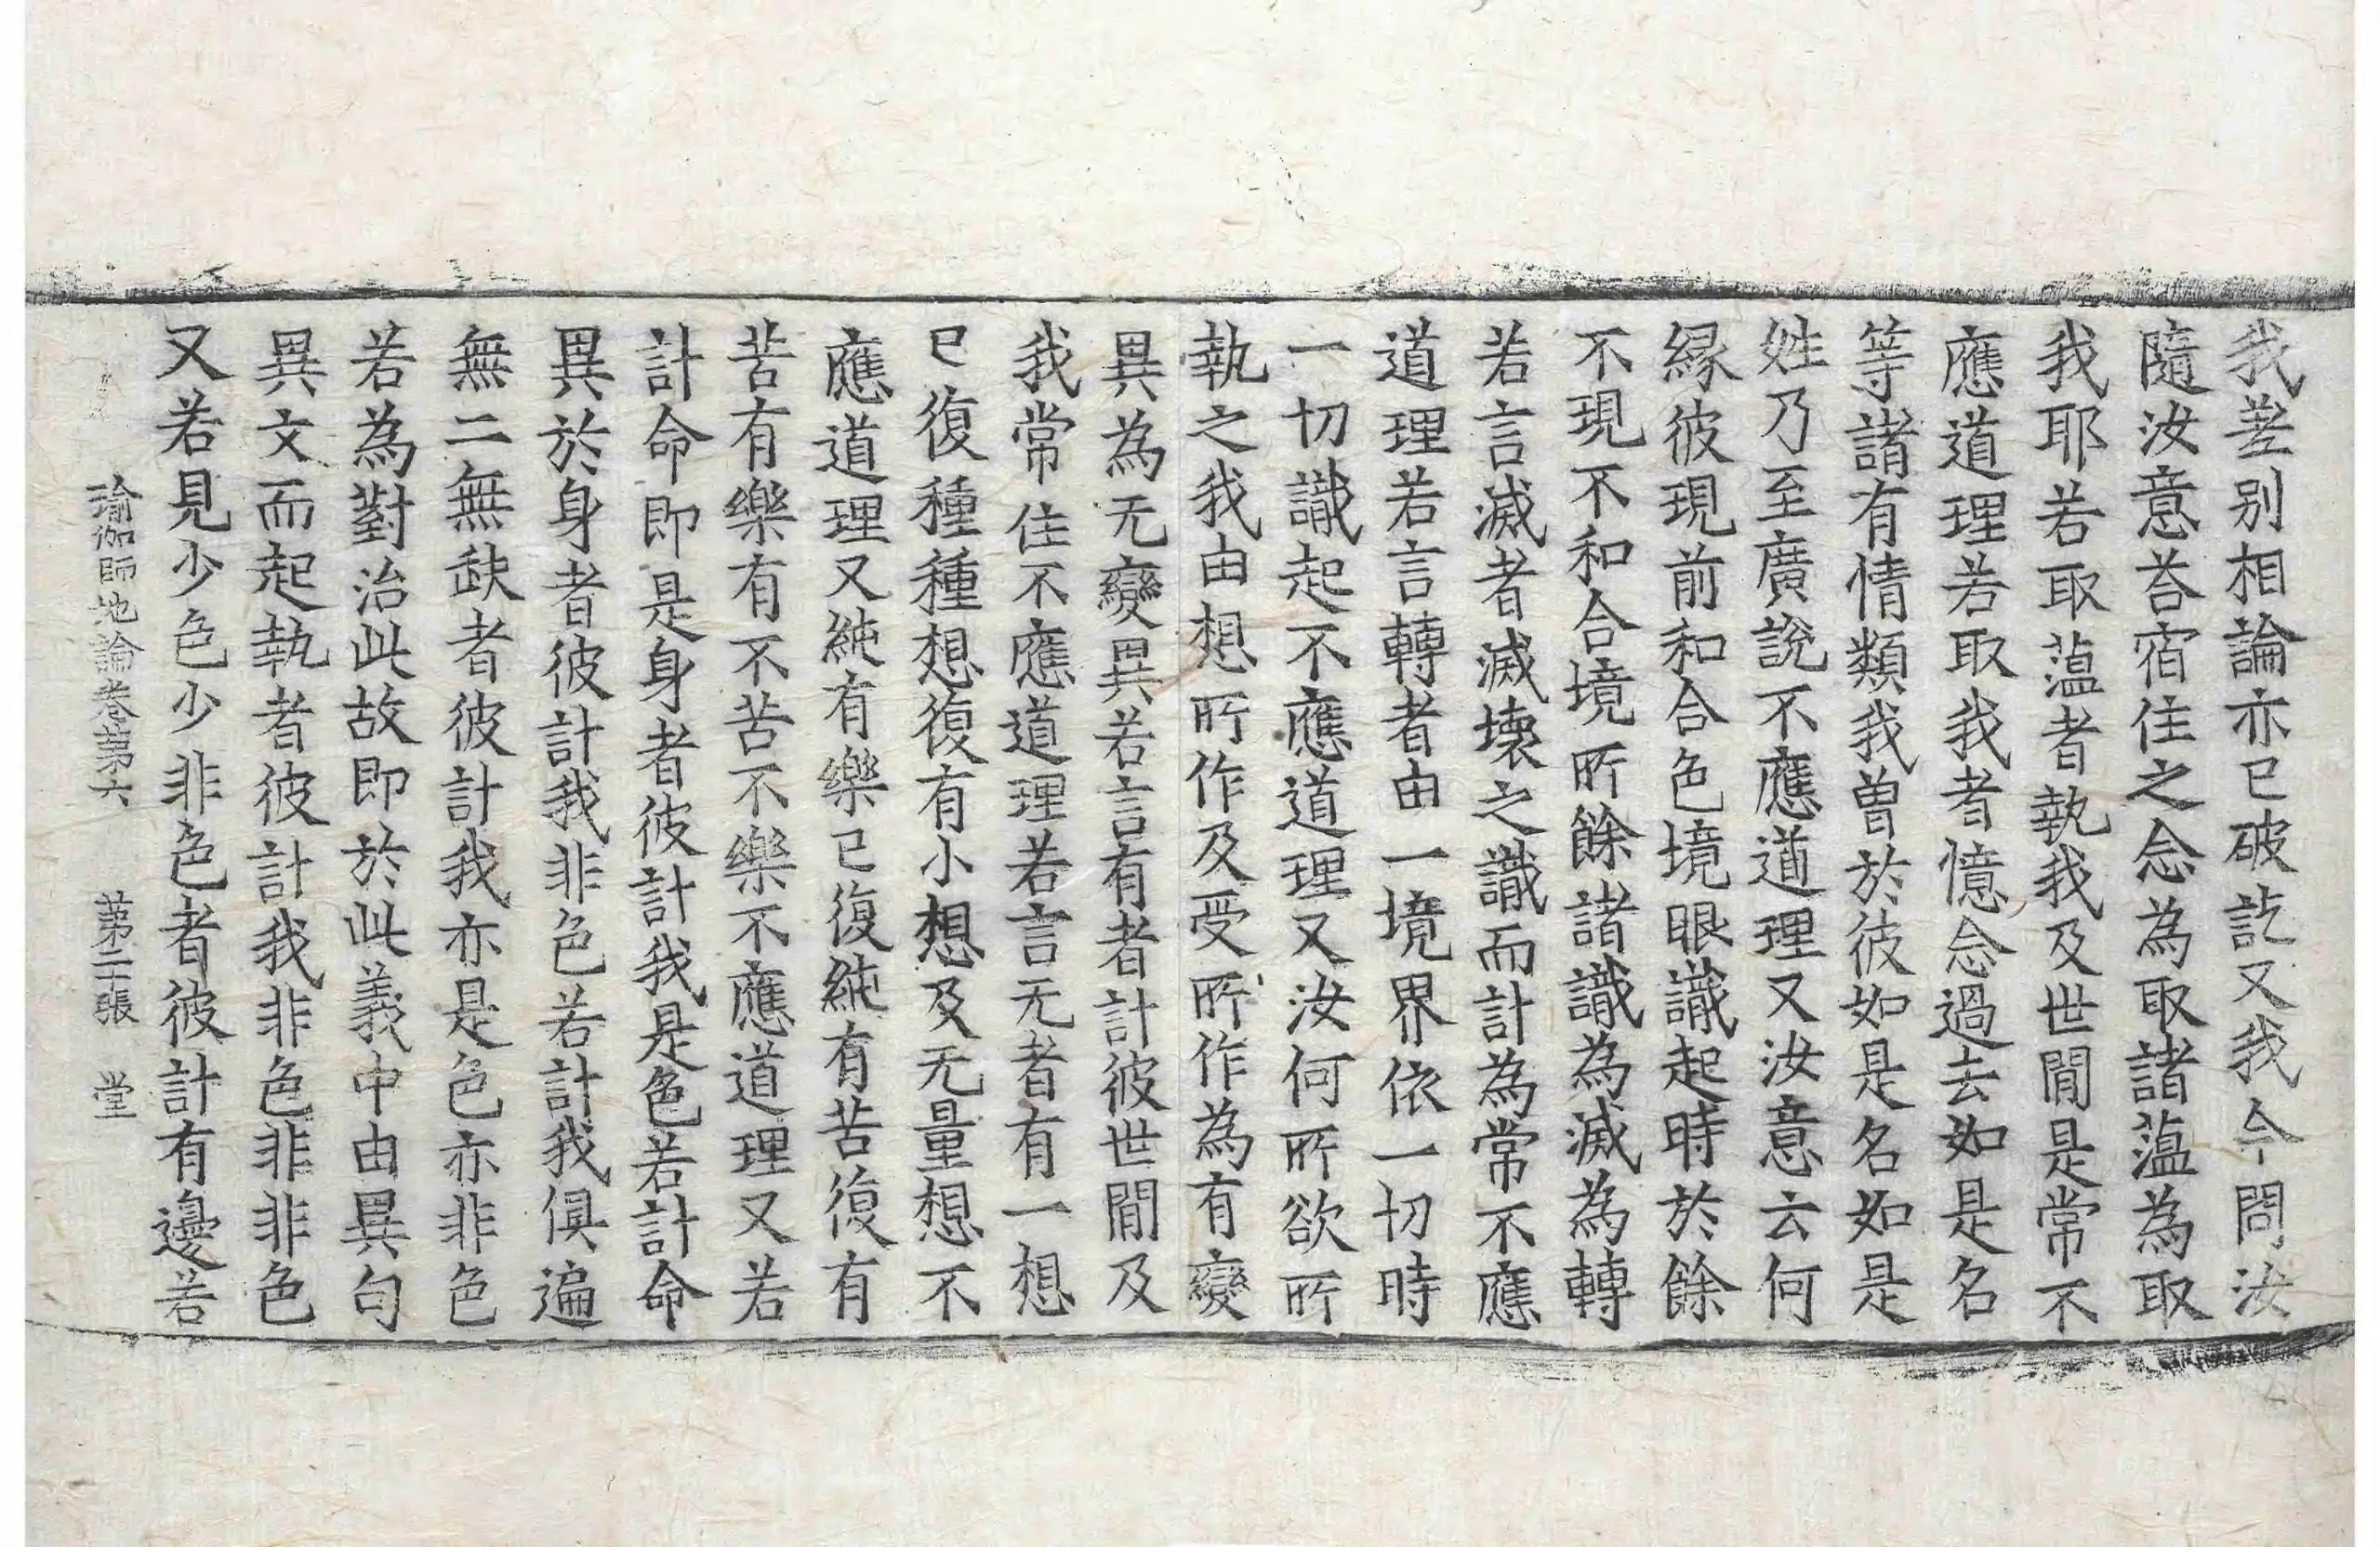 我差别相論亦已破訖又我今問汝
隨汝意荅宿住之念為取諸薀為取
我耶若取薀者執我及世間是常不
應道理若取我者憶念過去如是名
等諸有情類我曽於彼如是名如是
姓乃至廣說不應道理又汝意云何
縁彼現前和合色境眼識起時於餘
不現不和合境所餘諸識為滅為轉
若言滅者滅壞之識而計為常不應
道理若言轉者由一境界依一切時
一切識起不應道理又汝何所欲所
執之我由想所作及受所作為有變
異為无變異若言有者計彼世間及
我常住不應道理若言无者有一想
已復種種想復有小想及无量想不
應道理又純有樂已復純有苦復有
苦有樂有不苦不樂不應道理又若
計命即是身者彼計我是色若計命
異於身者彼計我非色若計我俱遍
無二無缺者彼計我亦是色亦非色
若為對治此故即於此義中由異句
異文而起執者彼計我非色非非色
又若見少色少非色者彼計有邊若
瑜伽師地論卷第六 第二十張 堂